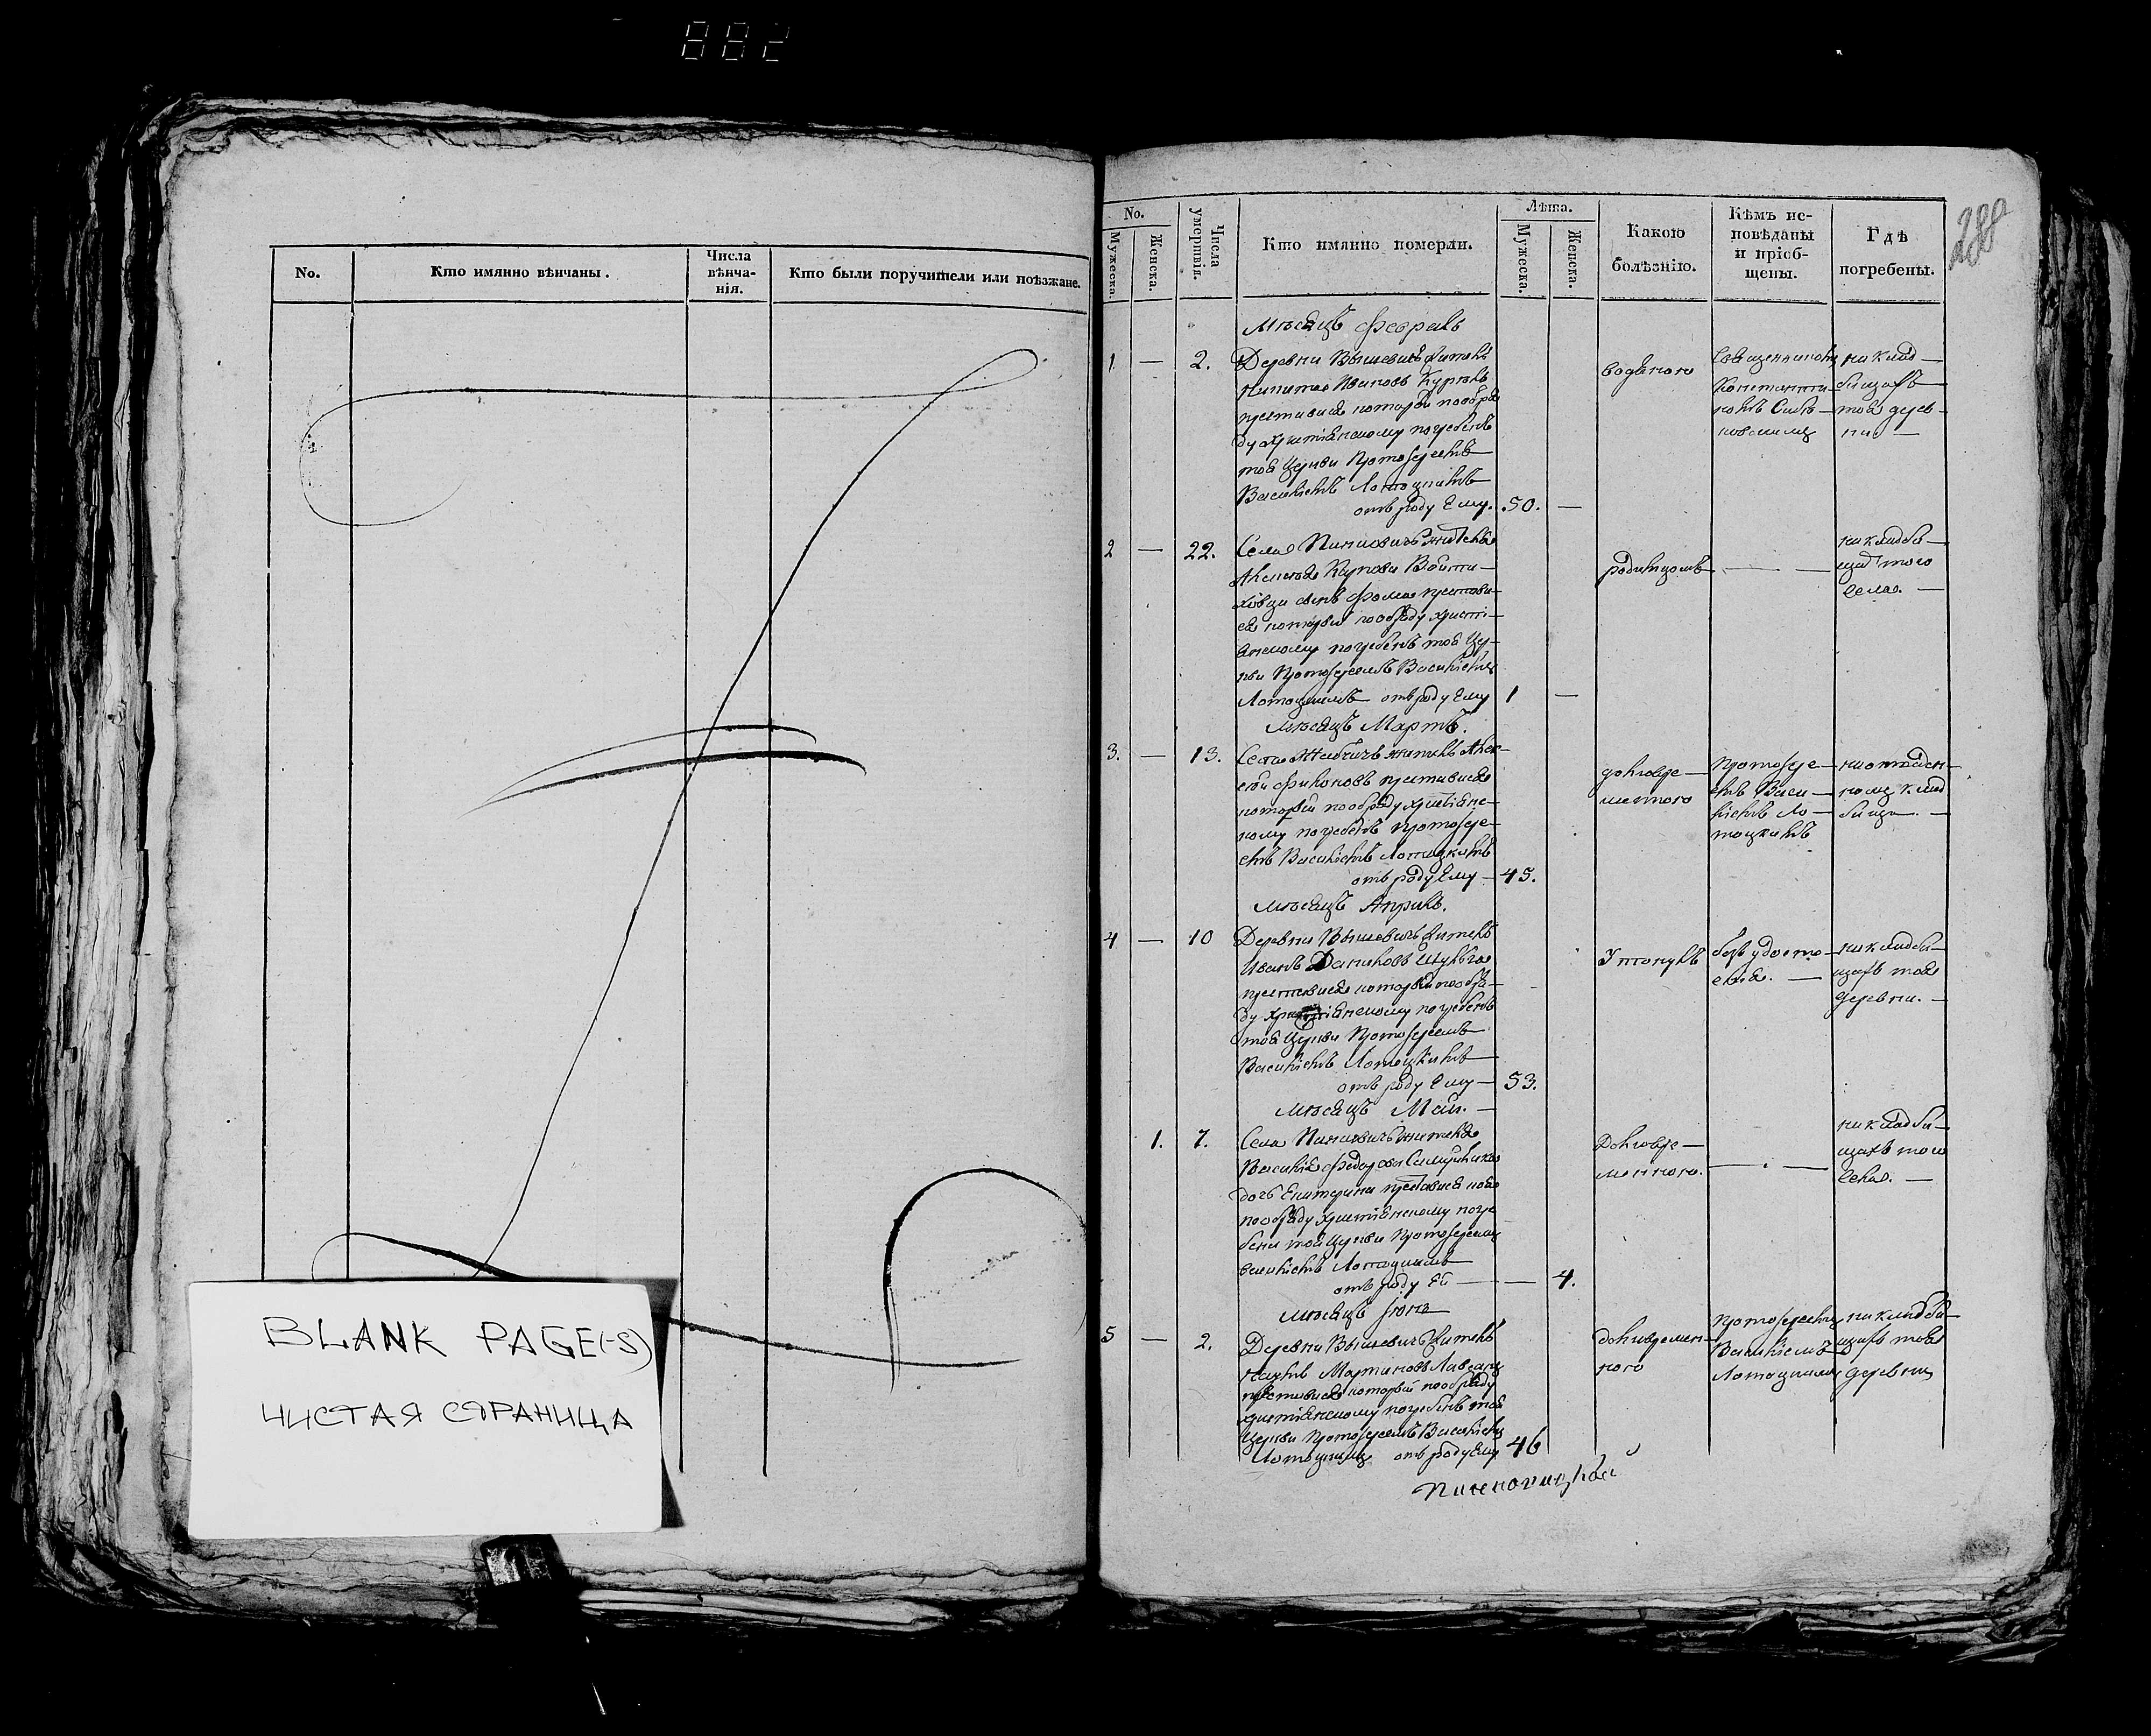 882
No.
Кто имянно вѣнчаны.
Числа вѣнча-нія.
Кто были поручители или поѣзжане.
BLANK PAGE(-S)
ЧИСТАЯ СТРАНИЦА
No.
Мужеска.
Женска.
Числа умершія.
Кто имянно померли.
Лѣта.
Мужеска.
Женска.
Какою болѣзнію.
Кѣмъ ис-повѣданы и пріоб-щены.
Гдѣ погребены.
288
Мѣсяцъ Февраль
1 — 2. Деревни Вышевичъ житель
Ивановъ
преставися которій по обря
ду христіянскому погребенъ
тоя Церкви Протоіереемъ
Василіемъ Лотоцкимъ
отъ роду Ему. 50. —
водяною
Священникомъ
Константи-
номъ
на клад-
бищахъ
тоя дерев-
ни —
2 — 22. Села
Войти-
сынъ Фома престави-
ся которій по обряду христі-
янскому погребенъ тоя Цер-
кви Протоіереемъ Василіемъ
Лотоцкимъ отъ роду Ему 1 —
родимцомъ — —
на кладби-
щахъ того
села. —
Мѣсяцъ Мартъ.
3. — 13. Села житель Алек-
сей преставися
которій по обряду христіянс-
кому погребенъ Протоіере-
емъ Василіемъ Лотоцкимъ
отъ роду Ему — 45.
долговре-
менною
Протоіере-
емъ Васи-
ліемъ Ло-
тоцкимъ
клад
бищи —
Мѣсяцъ Апрель.
4 — 10 Деревни Вышевичъ житель
Иванъ Даниловъ Шульга
преставися которій по обря-
ду христіянскому погребенъ
тоя Церкви Протоіереемъ
Василіемъ Лотоцкимъ
отъ роду Ему — 53.
Утонулъ
безъ удосто-
енія. —
на кладби-
щахъ тоя
деревни. —
Мѣсяцъ Май. —
1. 7. Села жителя
Василія Федорова
дочь Екатерина преставися коя
по обряду христіянскому погре
бена тоя Церкви Протоіереемъ
Василіемъ Лотоцкимъ
отъ роду Ей — — 4.
Долговре-
менною. — . —
на кладби-
щахъ того
села. —
Мѣсяцъ Іюнь
5 — 2. Деревни Вышевичъ житель
Мартиновъ
преставися которій по обряду
христіянскому погребенъ тоя
Церкви Протоіереемъ Василіемъ
Лотоцкимъ отъ роду Ему 46
долгвремен-
ного
Протоіереемъ
Василіемъ
Лотоцкимъ
на кладби-
щахъ тоя
деревни